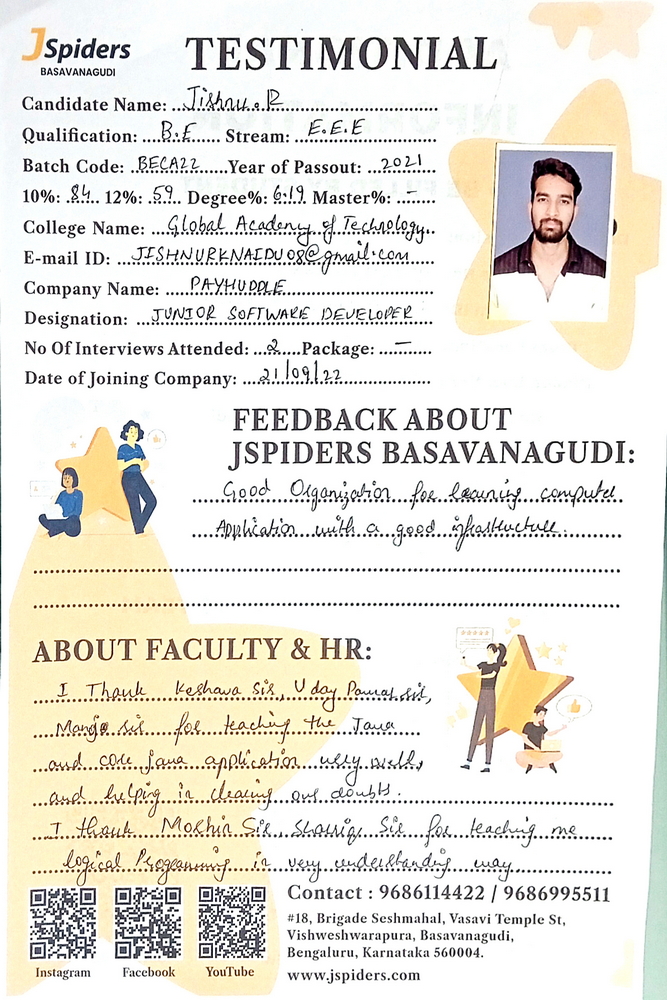 JSpiders
BASAVANAGUDI
TESTIMONIAL
Candidate Name: Jishnu.R
Qualification: B.E Stream: E.E.E
Batch Code: BECA22 Year of Passout: 2021
10%: 84 12%: 59 Degree%: 6.19 Master%: -
College Name: Global Academy of Technology
E-mail ID: JISHNURKNAIDU08@gmail.com
Company Name: PAYHUDDLE
Designation: JUNIOR SOFTWARE DEVELOPER
No Of Interviews Attended: 2 Package: -
Date of Joining Company: 21/09/22
FEEDBACK ABOUT
JSPIDERS BASAVANAGUDI:
Good Organization for learning computer
Application with a good infrastructure.
ABOUT FACULTY & HR:
I Thank Keshava Sir, Uday Pawar sir,
Manja sir for teaching the Java
and core java application very well,
and helping in clearing our doubts.
I thank Moshin Sir, Sir for teaching me
logical Programming in very understanding way
Contact : 9686114422 / 9686995511
#18, Brigade Seshmahal, Vasavi Temple St,
Vishweshwarapura, Basavanagudi,
Bengaluru, Karnataka 560004.
Instagram Facebook YouTube
www.jspiders.com